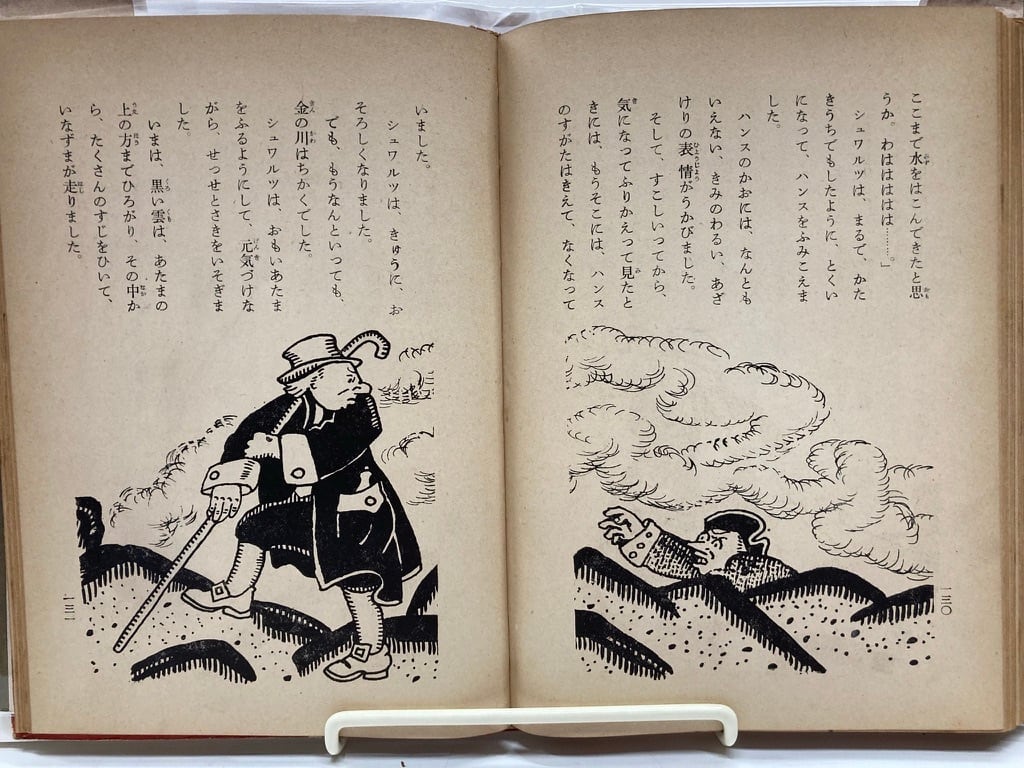 ここまで水をはこんできたと思
うか。わはははははは……。」
シュワルツは、まるで、かた
きうちでもしたように、とくい
になって、ハンスをふみこえま
した。
ハンスのかおには、なんとも
いえない、きみのわるい、あざ
けりの表情がうかびました。
そして、すこしいってから、
気になってふりかえって見たと
きには、もうそこには、ハンス
のすがたはきえて、なくなって
一三〇
いました。
シュワルツは、きゅうに、お
そろしくなりました。
でも、もうなんといっても、
金の川はちかくでした。
シュワルツは、おもいあたま
をふるようにして、元気づけな
がら、せっせとさきをいそぎま
した。
いまは、黒い雲は、あたまの
上の方までひろがり、その中か
ら、たくさんのすじをひいて、
いなずまが走りました。
一三一